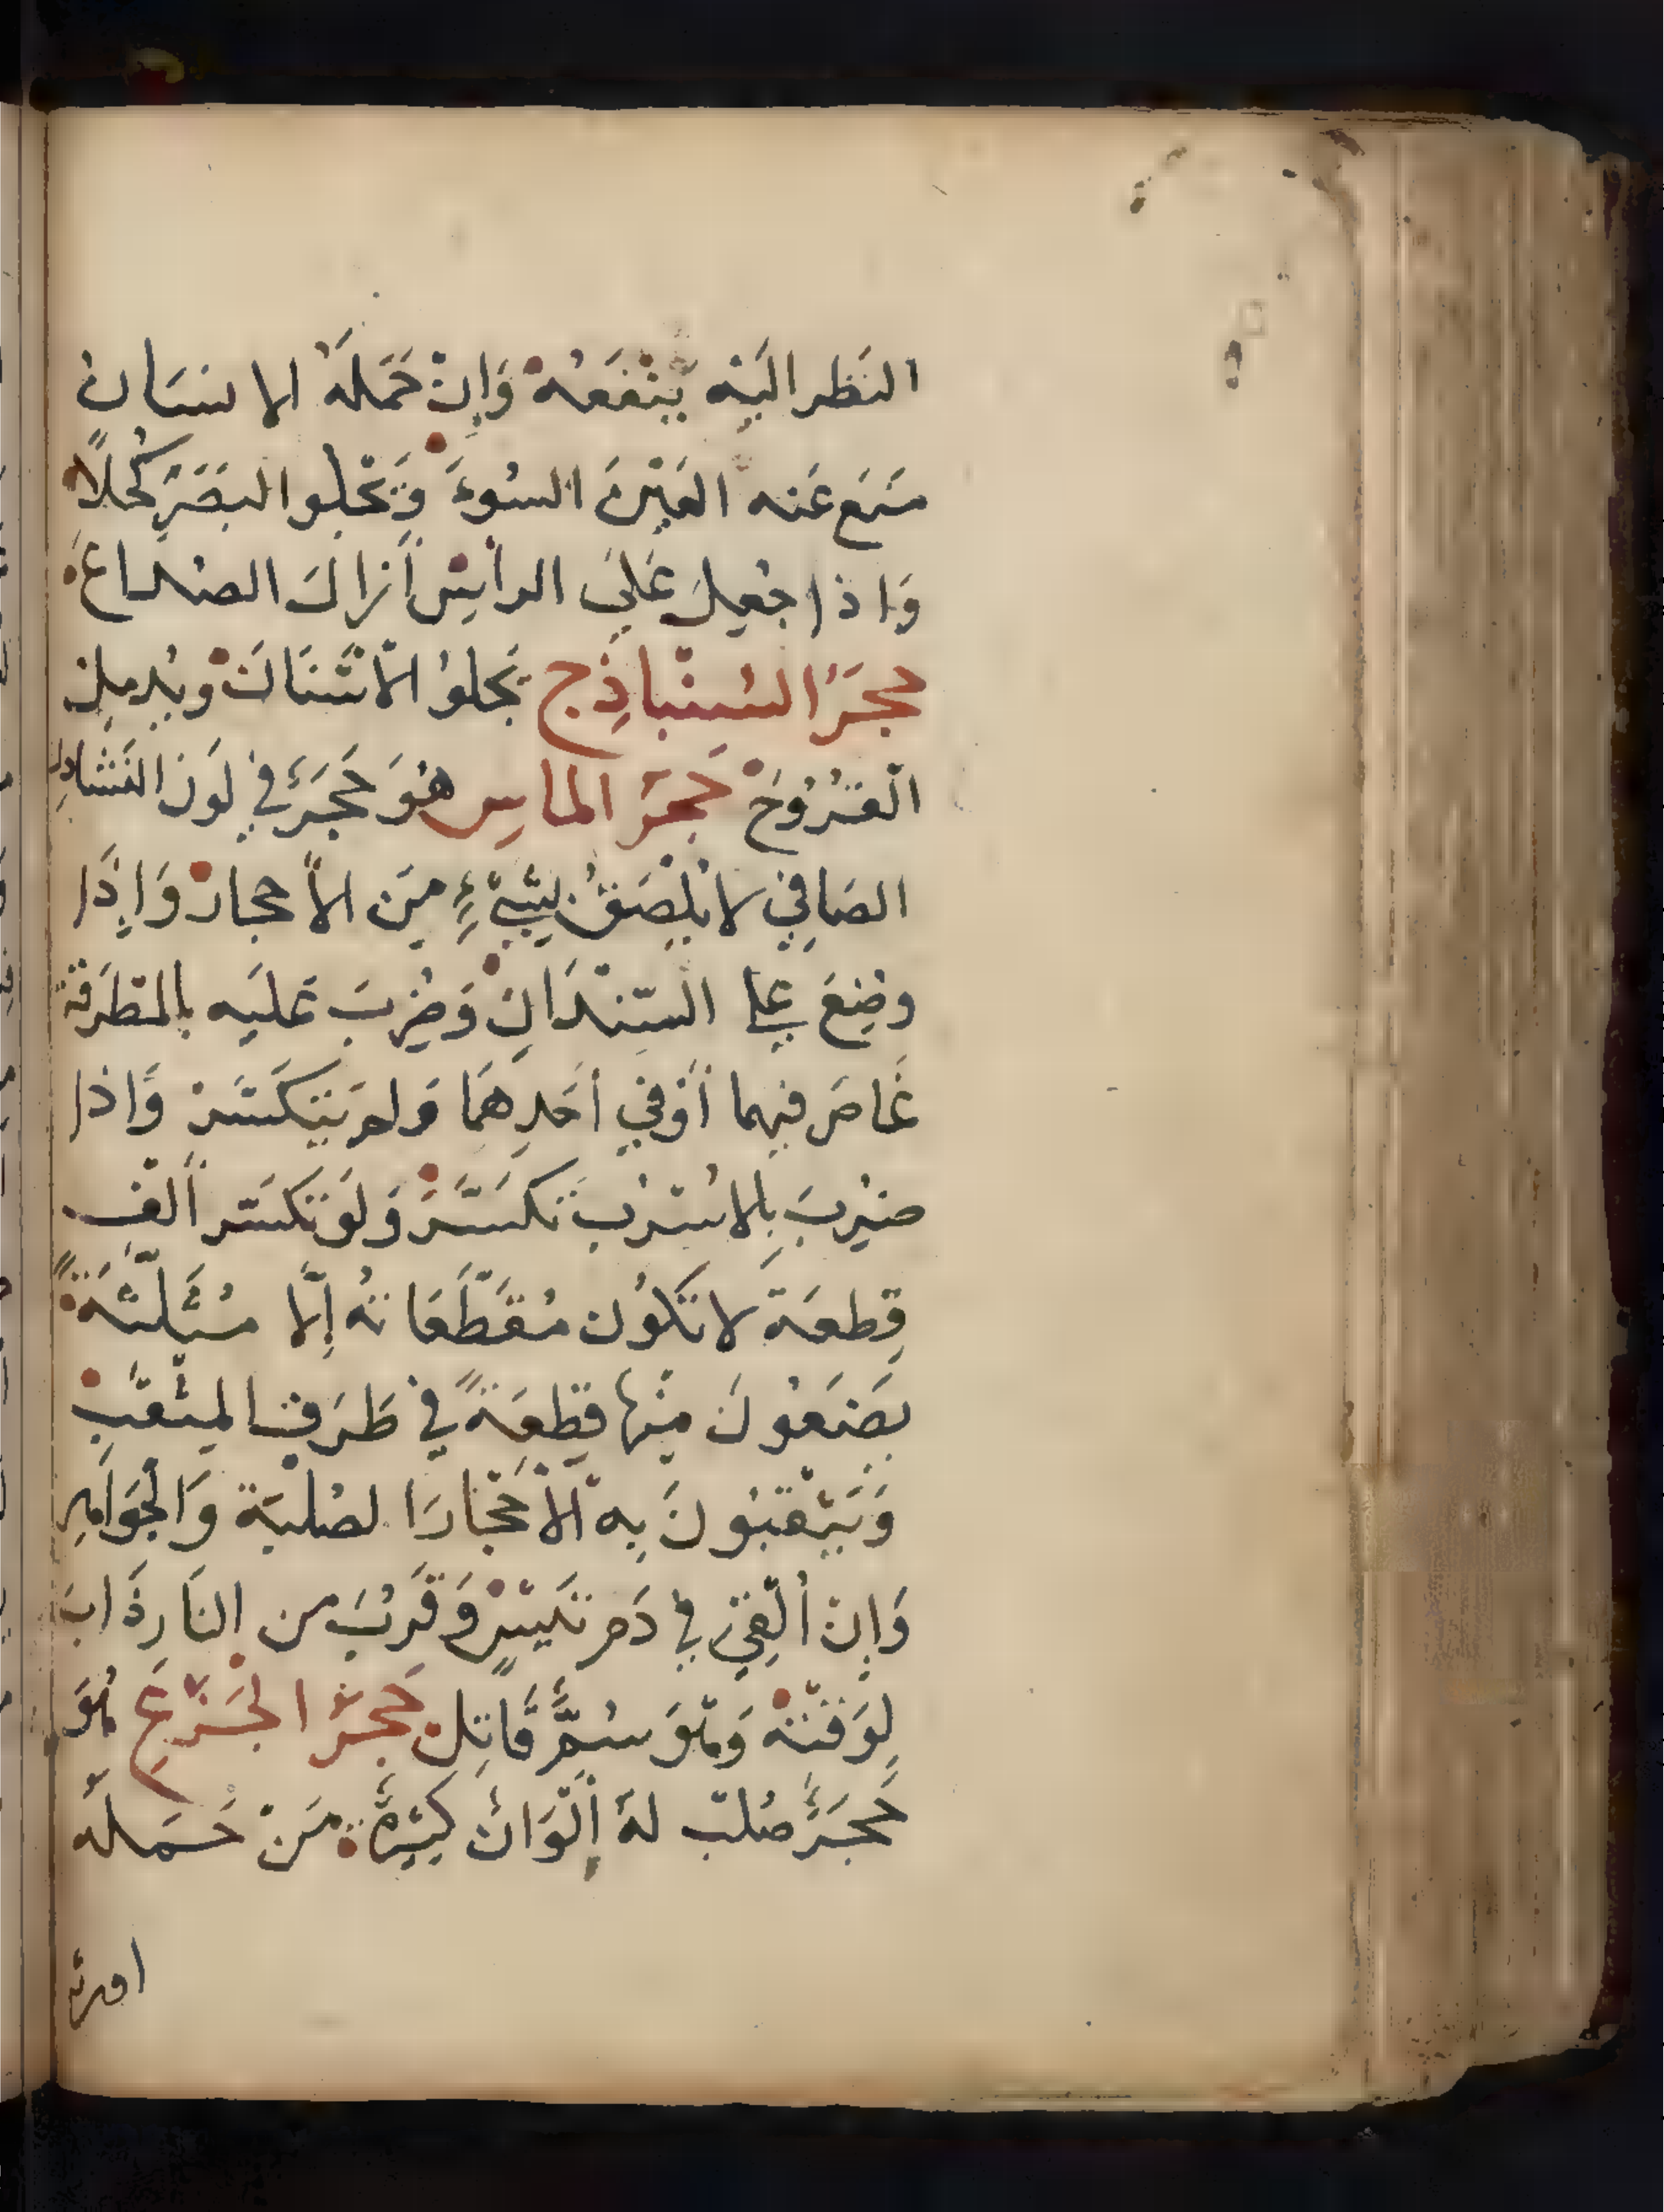 النَظر اليَه يَنْفَعُهْ وَاِنْ حَمَلَهُ الانسَانُ
مَنَع عَنه العَيْنَ السُوءَ وَيَجْلوا البَصَرَ كُحلًا
وَاذا جُعِلَ عَلَى الرأسِ أزالَ الصُداعَ
حجَرُ السُنْبَاذِج يَجلوُ الأسْنَانَ ويُدمِل
القُرُوحَ حَجَرُ الماسِ هُوَ حَجَرٌ في لَون النُشادِر
الصَافِي لا يَلصَقُ بِشَيْءٍ مِن الأحجارْ وَاِذَا
وضِعَ على السّنْدَانِ وَضُرِبَ عَلَيه بالمَطرَقة
غَاصَ فيهما أوْ في أحَدِهَمَا وَلم يَتكَسَّرْ وَاذا
ضُرِبَ بِالاسْرُبِ تَكَسَّرَ وَلَو تكَسَّر أَلْفَ
قِطعَة لا تكُون مُقَطَّعَاتهُ إِلَّا مُثَلَّثَةً
يَضَعُونَ مِنْها قِطعَةً في طَرَف المِثْقَبِ
وَيَثْقبُونَ بِه الأحْجَارَ الصُلبَة وَالْجَوَاهِر
وَاِنْ أُلْقِيَ في دَم تَيسٍ وَقُرِّبَ من النَارِ ذَابَ
لِوَقتهْ وَهُوَ سُمٌّ قَاتِل حَجَرُ الْجَزْعِ هُوَ
حَجَرٌ صُلب لهُ أَلْوَانٌ كَثِيرَةٌ مَنْ حَمَلَهُ
اورثه